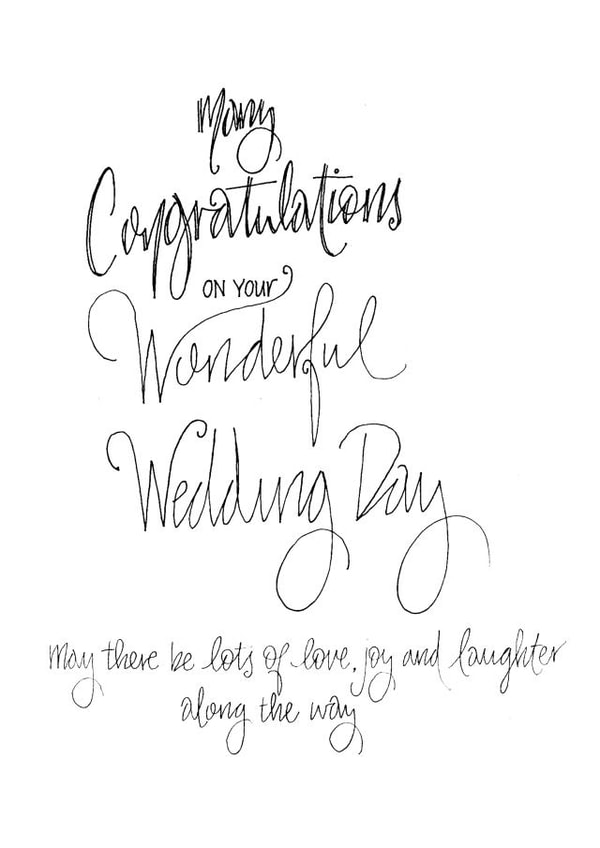 Many
Congratulations
ON YOUR
Wonderful
Wedding Day
May there be lots of love, joy and laughter
along the way